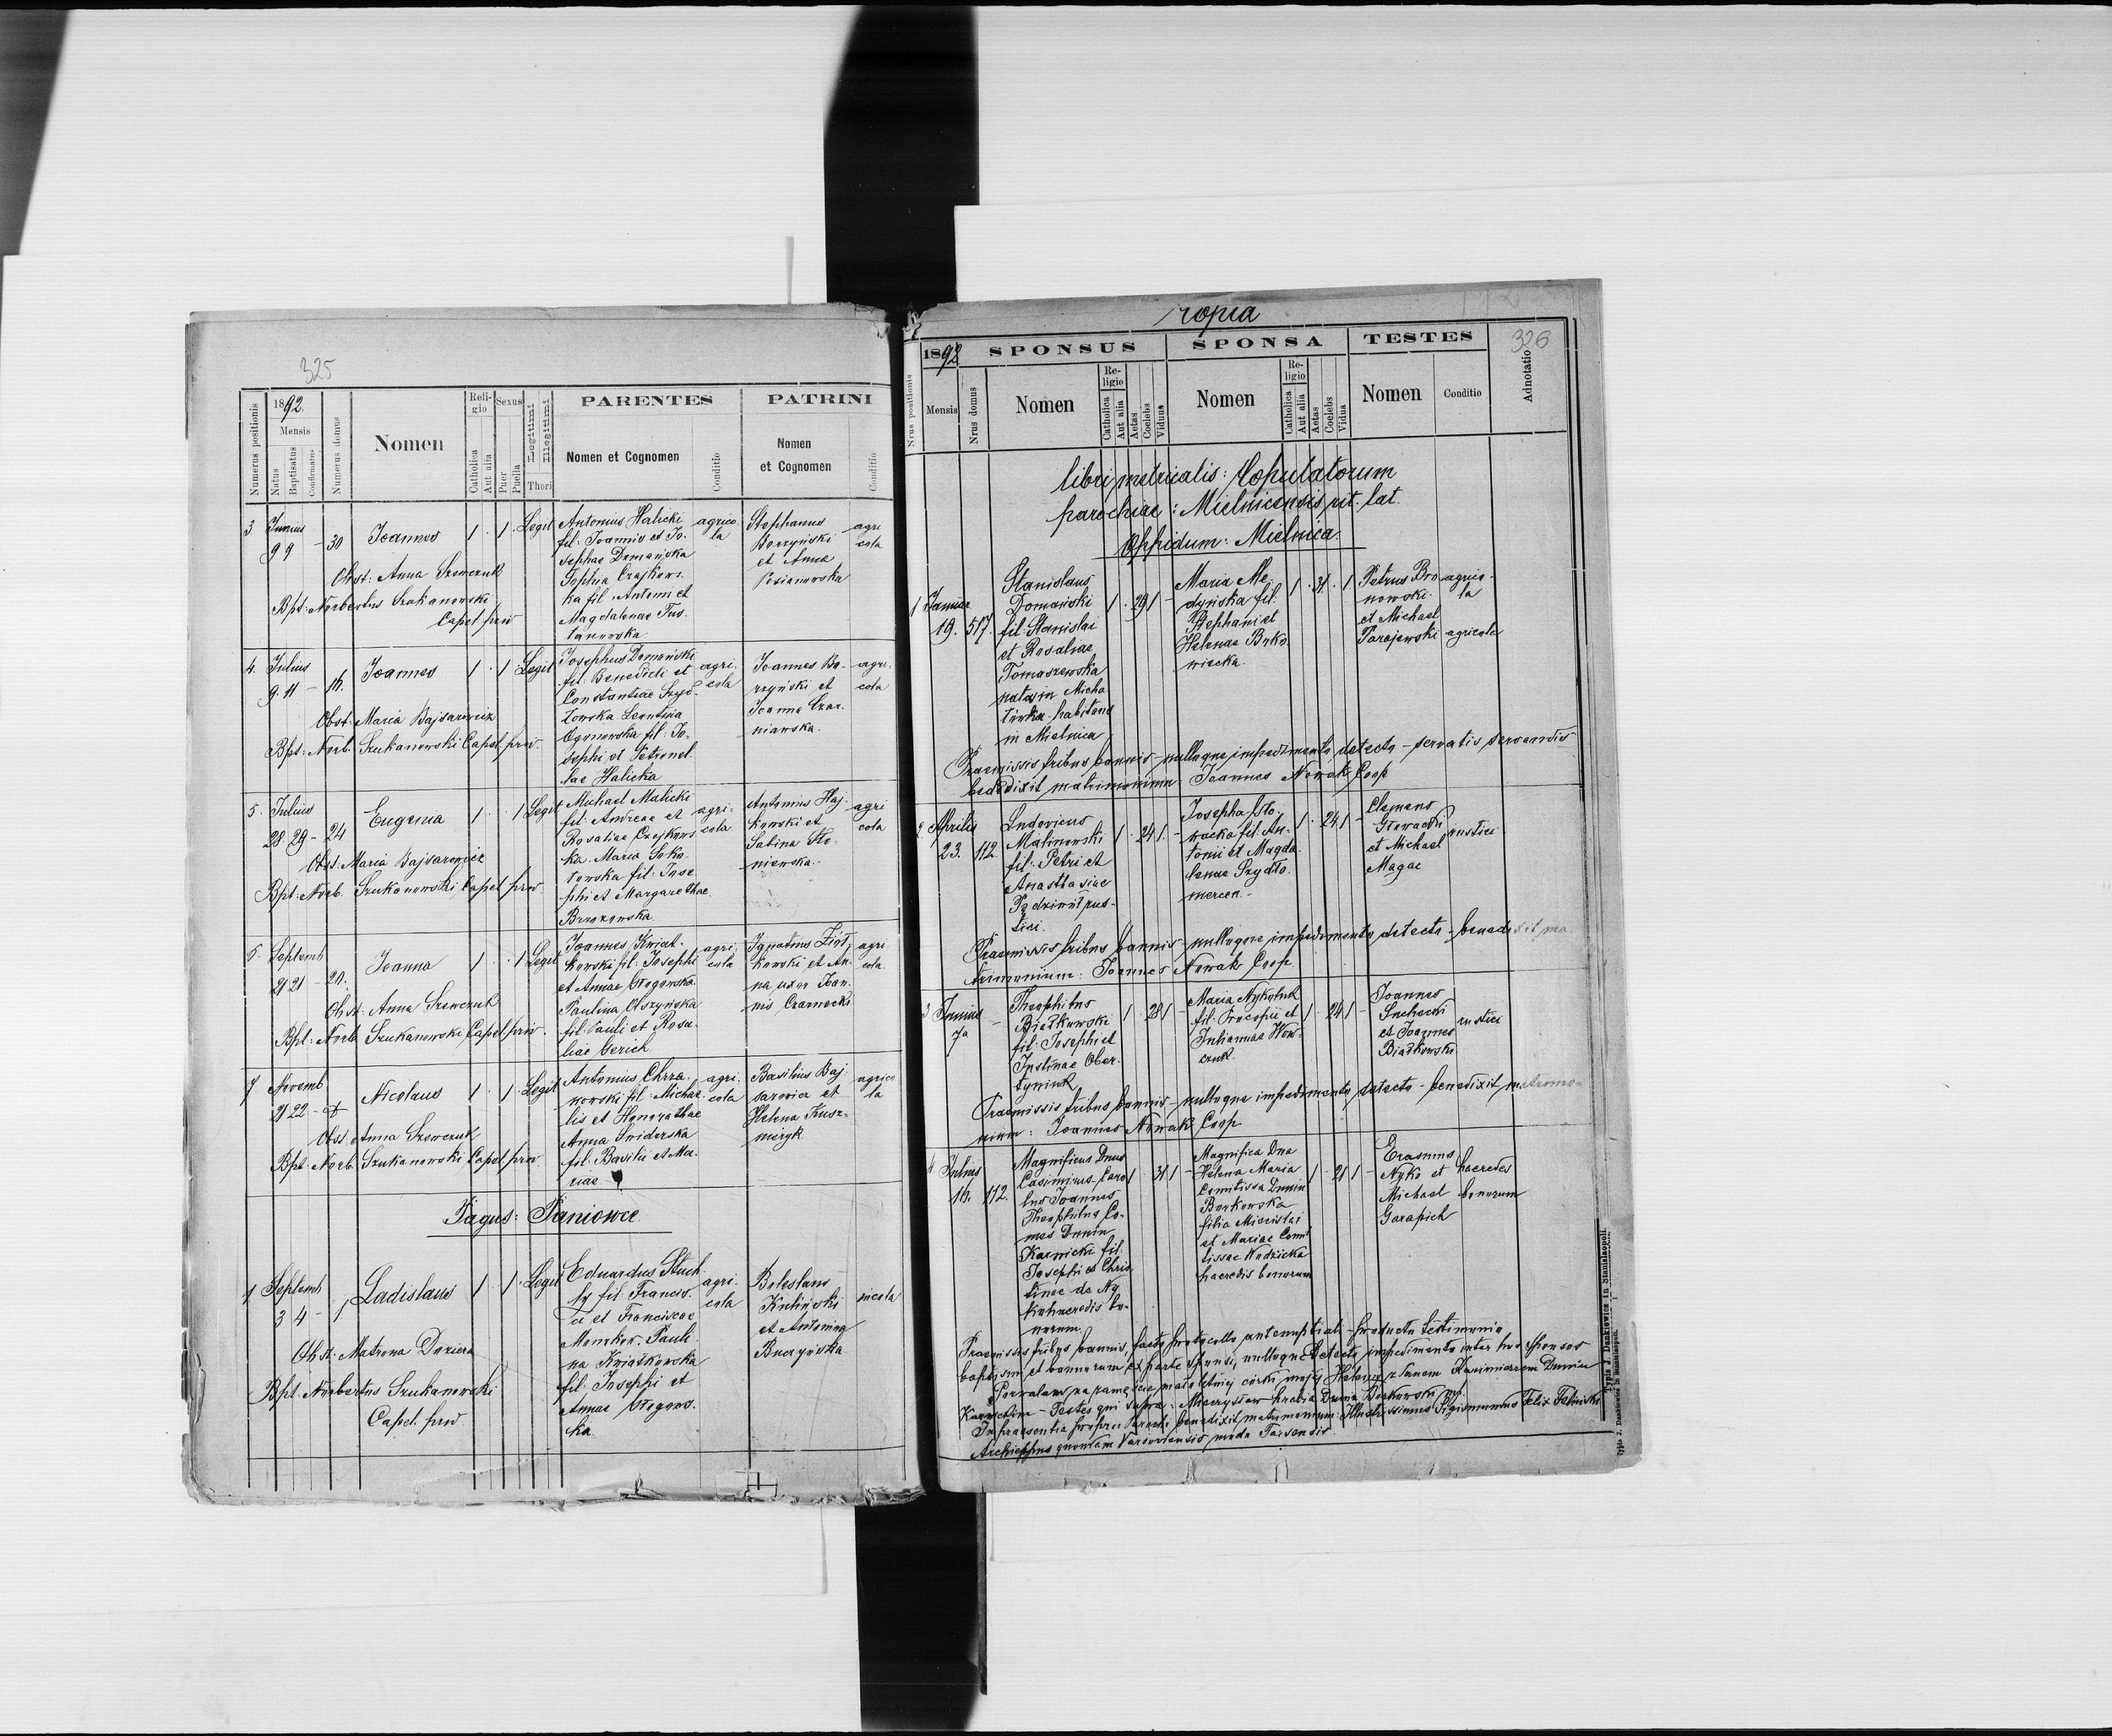 325
Numerus positionis
1892.
Mensis
Natus
Baptisatus
Confirmatus
Numerus domus
Nomen
Reli-
gio
Catholica
Aut alia
Sexus
Puer
Puella
Legitimi
Illegitimi
Thori
PARENTES
Nomen et Cognomen
Conditio
PATRINI
Nomen
et Cognomen
Conditio
3 Junius 9 9 - 30 Joannes 1 . 1 . Legit
Obst: Anna Szewczuk
Bpt: Norbertus Szukanowski
Capel priv
Antonius Halicki
fil: Joannis et Jo-
sephae Domańska
Sophia Czajkows-
ka fil: Antonii et
Magdalenae Tus-
tanowska
agrico
la
Stephanus
Borzyński
et Anna
agri
cola
4. Julius 9. 11 - 16. Joannes 1 . 1 Legit
Obst: Maria Bajsarowicz
Bpt: Norb. Szukanowski Capel priv.
Josephus Domański
fil: Benedicti et
Constantiae Szyd-
łowska. Leontina
Ogonowska fil: Jo-
sephi et Petronel-
lae Halicka
agri-
cola
Joannes Bo-
rzyński et
Joanna Czar-
niawska.
agri-
cola
5. Julius 28 29 - 24 Eugenia 1 . . 1 Legit
Obst: Maria Bajsarowicz
Bpt: Norb. Szukanowski Capel priv
Michael Malicki
fil: Andreae et
Rosaliae Czajkows-
ka. Maria Soko-
łowska fil: Jose-
phi et Margarethae
Brzozowska.
agri-
cola
Antonius Haj-
kowski et
Sabina Sło-
niewska.
agri
cola
6. Septemb 21 21 - 20. Joanna 1 . . 1 Legit
Obst: Anna Szewczuk
Bpt: Norb Szukanowski Capel priv.
Joannes Kwiat-
kowski fil: Josephi
et Annae Głogowska.
Paulina Olszyńska
fil: Pauli et Rosa-
liae Gerich
agri-
cola
Ignatius Ziół-
kowski et An-
na uxor Joan-
nis Czarnecki
agri
cola.
7 Novemb 21 22 - Nicolaus 1 . 1 . Legit
Obst: Anna Szewczuk
Bpt: Norb Szukanowski Capel priv
Antonius Chrza-
nowski fil: Michae-
lis et Honorathae
Anna Swiderska
fil: Basilii et Ma-
riae
agri-
cola
Basilius Baj-
sarowicz et
Helena Kusz-
meryk
agrico
la
Pagus: Paniowce.
1 Septemb 3 4 - 1 Ladislaus 1 . 1 . Legit
Obst: Matrona Doziera
Bpt: Norbertus Szukanowski
Capel. priv.
Eduardus Stuch-
ły fil: Francis-
ci et Franciscae
Monckow. Pauli-
na Kwiatkowska
fil: Josephi et
Annae Głogows-
ka.
agri-
cola
Boleslaus
Kuliński
et Antonina
Buczyńska
Copia
326
Nrus positionis
1892
Mensis
Nrus domus
SPONSUS
Nomen
Re-
ligio
Catholica
Aut alia
Aetas
Coelebs
Viduus
SPONSA
Nomen
Re-
ligio
Catholica
Aut alia
Aetas
Coelebs
Vidua
TESTES
Nomen
Conditio
Adnotatio
libri metricalis: Copulatorum
parochiae: Mielnicensis rit. lat.
Oppidum: Mielnica.
1 Januar 19. 517.
Stanislaus
Domański
fil: Stanislai
et Rosaliae
Tomaszewska
natus in Micha-
łówka habitans
in Mielnica
1 . 29 1 -
Maria Me-
dyńska fil:
Stephani et
Helenae Buko-
wiecka.
1 . 31 . 1
Petrus Bro-
nowski
et Michael
Parajewski
agrico-
la
agricola
Praemissis tribus bannis - nulloque impedimento detecto - servatis servandis
benedixit matrimonium Joannes Nowak Coop
2 Aprilis 23. 112.
Ludovicus
Malinowski
fil: Petri et
Anasthasiae
rus-
tici.
1 . 24 1. -
Josepha Sło-
wacka fil: An-
tonii et Magda-
lenae Szydło-
mercen.
1 . 24 1 -
Clemens
Głowacki
et Michael
Magac
rustici
Praemissis tribus bannis - nulloque impedimento detecto - benedixit ma-
trimonium: Joannes Nowak Coop.
3 Junius 7a -
Theophilus
Białkowski
fil: Josephi et
Justinae Ober-
tyniuk
1 . 28 1
Maria Nykoluk
fil: Procopii et
Julianae Wow-
czuk.
1 . 24 1 -
Joannes
Suchecki
et Joannes
Białkowski
rustici
Praemissis tribus bannis - nulloque impedimento detecto - benedixit matrimo-
nium: Joannes Nowak Coop
4 Julius 16. 112.
Magnificus Dnus
Casimirus Caro-
lus Joannes
Theophilus Co-
mes Dunin
Karwicki fil:
Josephi et Chris-
tinae de
haeredis bo-
norum.
1 . 31 1 -
Magnifica Dna
Helena Maria
Comitissa Dunin
Borkowska
filia Miecislai
et Mariae Comi-
tissae Wodzicka
haeredis bonorum
1 . 21 1 -
Erasmus
et
Michael
Garapich
haeredes
bonorum
Praemissis tribus bannis, facto protocollo antenuptiali - producto testimonio
baptismi et bannorum ex parte sponsi, nulloque detecto impedimento inter hos sponsos
Pozwalam na zamęście małoletniej córki mojej Heleny z Panem Kazimierzem Dunin
Karwickim - Testes qui supra: Mieczysław hrabia Dunin Borkowski mp.
In praesentia proprii Parochi benedixit matrimonium: Illustrissimus Sigismundus Felix Feliński
Archieppus quondam Varsoviensis modo Tarsensis
Typis J. Dankiewicz in Stanislaopoli.
Typis J. Dankiewicz in Stanislaopoli.